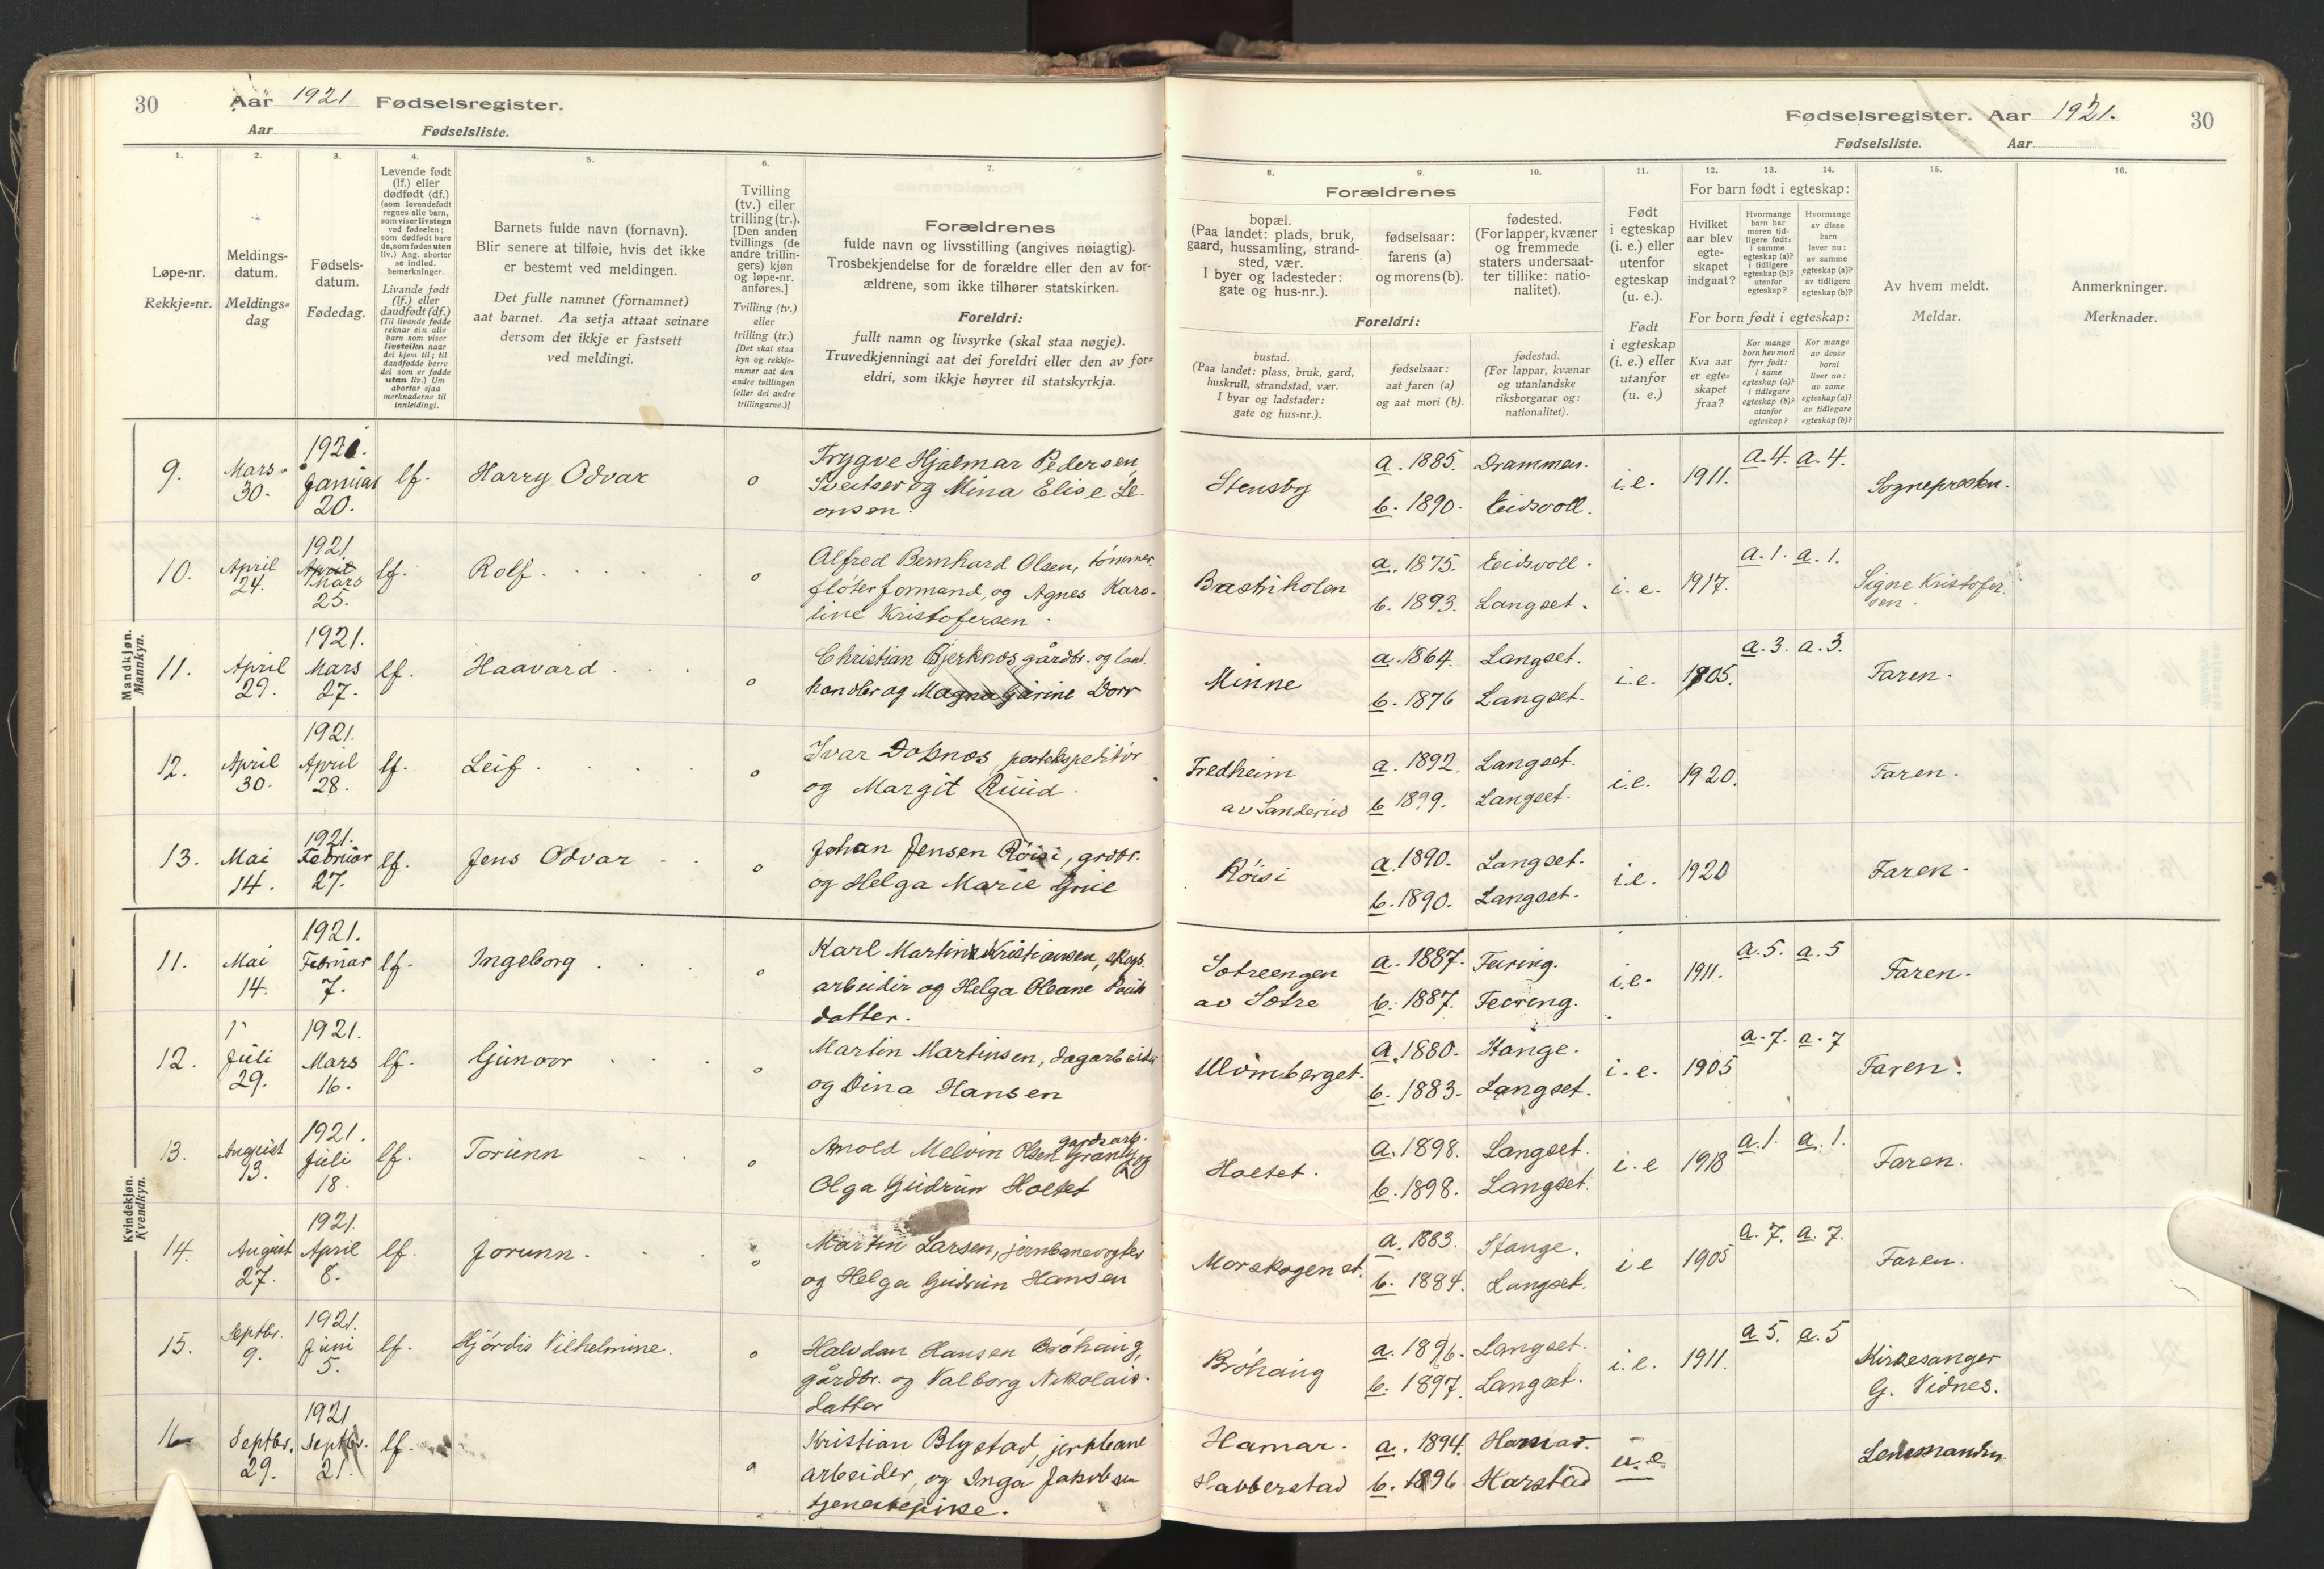 30 Aar 1921 Fødselsregister.
Aar Fødselsliste.
1. 2. 3. 4. 5. 6. 7.
Løpe-nr.
Rekkje=nr.
Meldings-
datum.
Meldings=
dag
Fødsels-
datum.
Fødedag.
Levende født
(lf.) eller
dødfødt (df.)
(som levendefødt
regnes alle barn,
som viser livstegn
ved fødselen;
som dødfødt bare
de, som fødes uten
liv.) Ang. aborter
se indled.
bemerkninger.
Livande født
(lf.) eller
daudfødt (df.)
(Til livande fødde
reknar ein alle
barn som viser
livsteikn naar
dei kjem til; til
daudfødde berre
dei som er fødde
utan liv.) Um
abortar sjaa
merknaderne til
innleidingi.
Barnets fulde navn (fornavn).
Blir senere at tilføie, hvis det ikke
er bestemt ved meldingen.
Det fulle namnet (fornamnet)
aat barnet. Aa setja attaat seinare
dersom det ikkje er fastsett
ved meldingi.
Tvilling
(tv.) eller
trilling (tr.).
[Den anden
tvillings (de
andre trillin-
gers) kjøn
og løpe-nr.
anføres.]
Tvilling (tv.)
eller
trilling (tr.)
[Det skal staa
kyn og rekkje-
numer aat den
andre tvillingen
(eller dei andre
trillingarne.)]
Forældrenes
fulde navn og livsstilling (angives nøiagtig).
Trosbekjendelse for de forældre eller den av for-
ældrene, som ikke tilhører statskirken.
Foreldri:
fullt namn og livsyrke (skal staa nøgje).
Truvedkjenningi aat dei foreldri eller den av for=
eldri, som ikkje høyrer til statskyrkja.
Mandkjøn.
Mannkyn.
9. Mars 30. 1921. Januar 20. lf. Harry Odvar o
Trygve Hjalmar Pedersen
Sveitser og Mina Elise Le-
onsen.
10. April 24. 1921 April Mars 25. lf. Rolf. o
Alfred Bernhard Olsen, tømmer-
fløterformand, og Agnes Karo-
line Kristofersen.
11. April 29. 1921. Mars 27. lf. Haavard o
Christian Bjerknes gårdbr. og land.
handler og Magna Gurine Dorr
12. April 30. 1921. April 28. lf. Leif. o
Ivar Doknes, postekspeditør
og Margit Ruud.
13. Mai 14. 1921. Februar 27. lf. Jens Odvar o
Johan Jensen Røisi, grdbr.
og Helga Marie Grue
Kvindekjøn.
Kvendkyn.
11. Mai 14. 1921. Februar 7. lf. Ingeborg o
Karl Martin Kristiansen, skogs.
arbeider og Helga Oleane
datter.
12. Juli 29. 1921. Mars 16. lf. Gunvor o
Martin Martinsen, dagarbeider
og Dina Hansen
13. August 13. 1921. Juli 18. lf. Torunn o
gardsarb.
Arnold Melvin Olsen og
Olga Gudrun Holtet
14. August 27. 1921. April 8. lf. Jorunn. o
Martin Larsen, jernbanevogter
og Helga Gudrun Hansen
15. Septbr. 9. 1921. Juni 5. lf. Hjørdis Vilhelmine. o
Halvdan Hansen Brøhaug,
gårdbr. og Valborg Nikolais-
datter
16 Septbr. 29. 1921 Septbr. 21. lf. o
Kristian Blystad, jernbane
arbeider, og Inga Jakobsen
tjenestepike.
Fødselsregister. Aar 1921. 30
Fødselsliste. Aar
8. 9. 10. 11. 12. 13. 14. 15. 16.
Forældrenes
bopæl.
(Paa landet: plads, bruk,
gaard, hussamling, strand-
sted, vær.
I byer og ladesteder:
gate og hus-nr.).
fødselsaar:
farens (a)
og morens (b).
fødested.
(For lapper, kvæner
og fremmede
staters undersaat-
ter tillike: natio-
nalitet).
Foreldri:
bustad.
(Paa landet: plass, bruk, gard,
huskrull, strandstad, vær.
I byar og ladstader:
gate og hus=nr.).
fødselsaar:
aat faren (a)
og aat mori (b).
fødestad.
(For lappar, kvænar
og utanlandske
riksborgarar og:
nationalitet).
Født
i egteskap
(i. e.) eller
utenfor
egteskap
(u. e.).
Født
i egteskap
(i. e.) eller
utanfor
(u. e.)
For barn født i egteskap:
Hvilket
aar blev
egte-
skapet
indgaat?
Hvormange
barn har
moren tid-
ligere født:
i samme
egteskap (a)?
i tidligere
egteskap (b)?
utenfor
egteskap?
Hvormange
av disse
barn
lever nu:
av samme
egteskap (a)?
av tidligere
egteskap (b)?
For born født i egteskap:
Kva aar
er egte=
skapet
fraa?
Kor mange
born hev mori
fyrr født:
i same
egteskap (a)?
i tidlegare
egteskap (b)?
utanfor
egteskap?
Kor mange
av desse
borni
liver no:
av same
egteskap (a)?
av tidlegare
egteskap (b)?
Av hvem meldt.
Meldar.
Anmerkninger.
Merknader.
Stensby a. 1885. Drammen. i.e. 1911. a. 4. a. 4. Sognepresten.
b. 1890. Eidsvoll.
Bastiholen a. 1875. Eidsvoll. i.e. 1917. a. 1. a. 1. Signe Kristofer
b. 1893. Langset. sen.
Minne a. 1864. Langset. i.e. 1905. a. 3. a. 3. Faren.
b. 1876 Langset.
Fredheim a. 1892. Langset. i.e. 1920. Faren.
av Sanderud b 1899. Langset.
Røisi a. 1890. Langset. i.e. 1920 Faren.
b. 1890. Langset.
Sætreengen a. 1887. Feiring. i.e. 1911. a. 5. a. 5 Faren.
av Sætre b. 1887. Feiring.
a. 1880. Stange. i.e. 1905 a. 7. a. 7 Faren.
b. 1883. Langset.
Holtet. a. 1898. Langset. i.e 1918 a. 1. a. 1. Faren.
b. 1898. Langset.
Morskogen st. a. 1883. Stange. i e 1905 a. 7. a. 7. Faren.
b. 1884. Langset.
Brøhaug a. 1896. Langset. i.e. 1911. a 5. a. 5 Kirkesanger
b. 1897. Langset. G. Vidnes.
Hamar. a. 1894. u.e. Lensmanden.
Habberstad b. 1896 Harstad